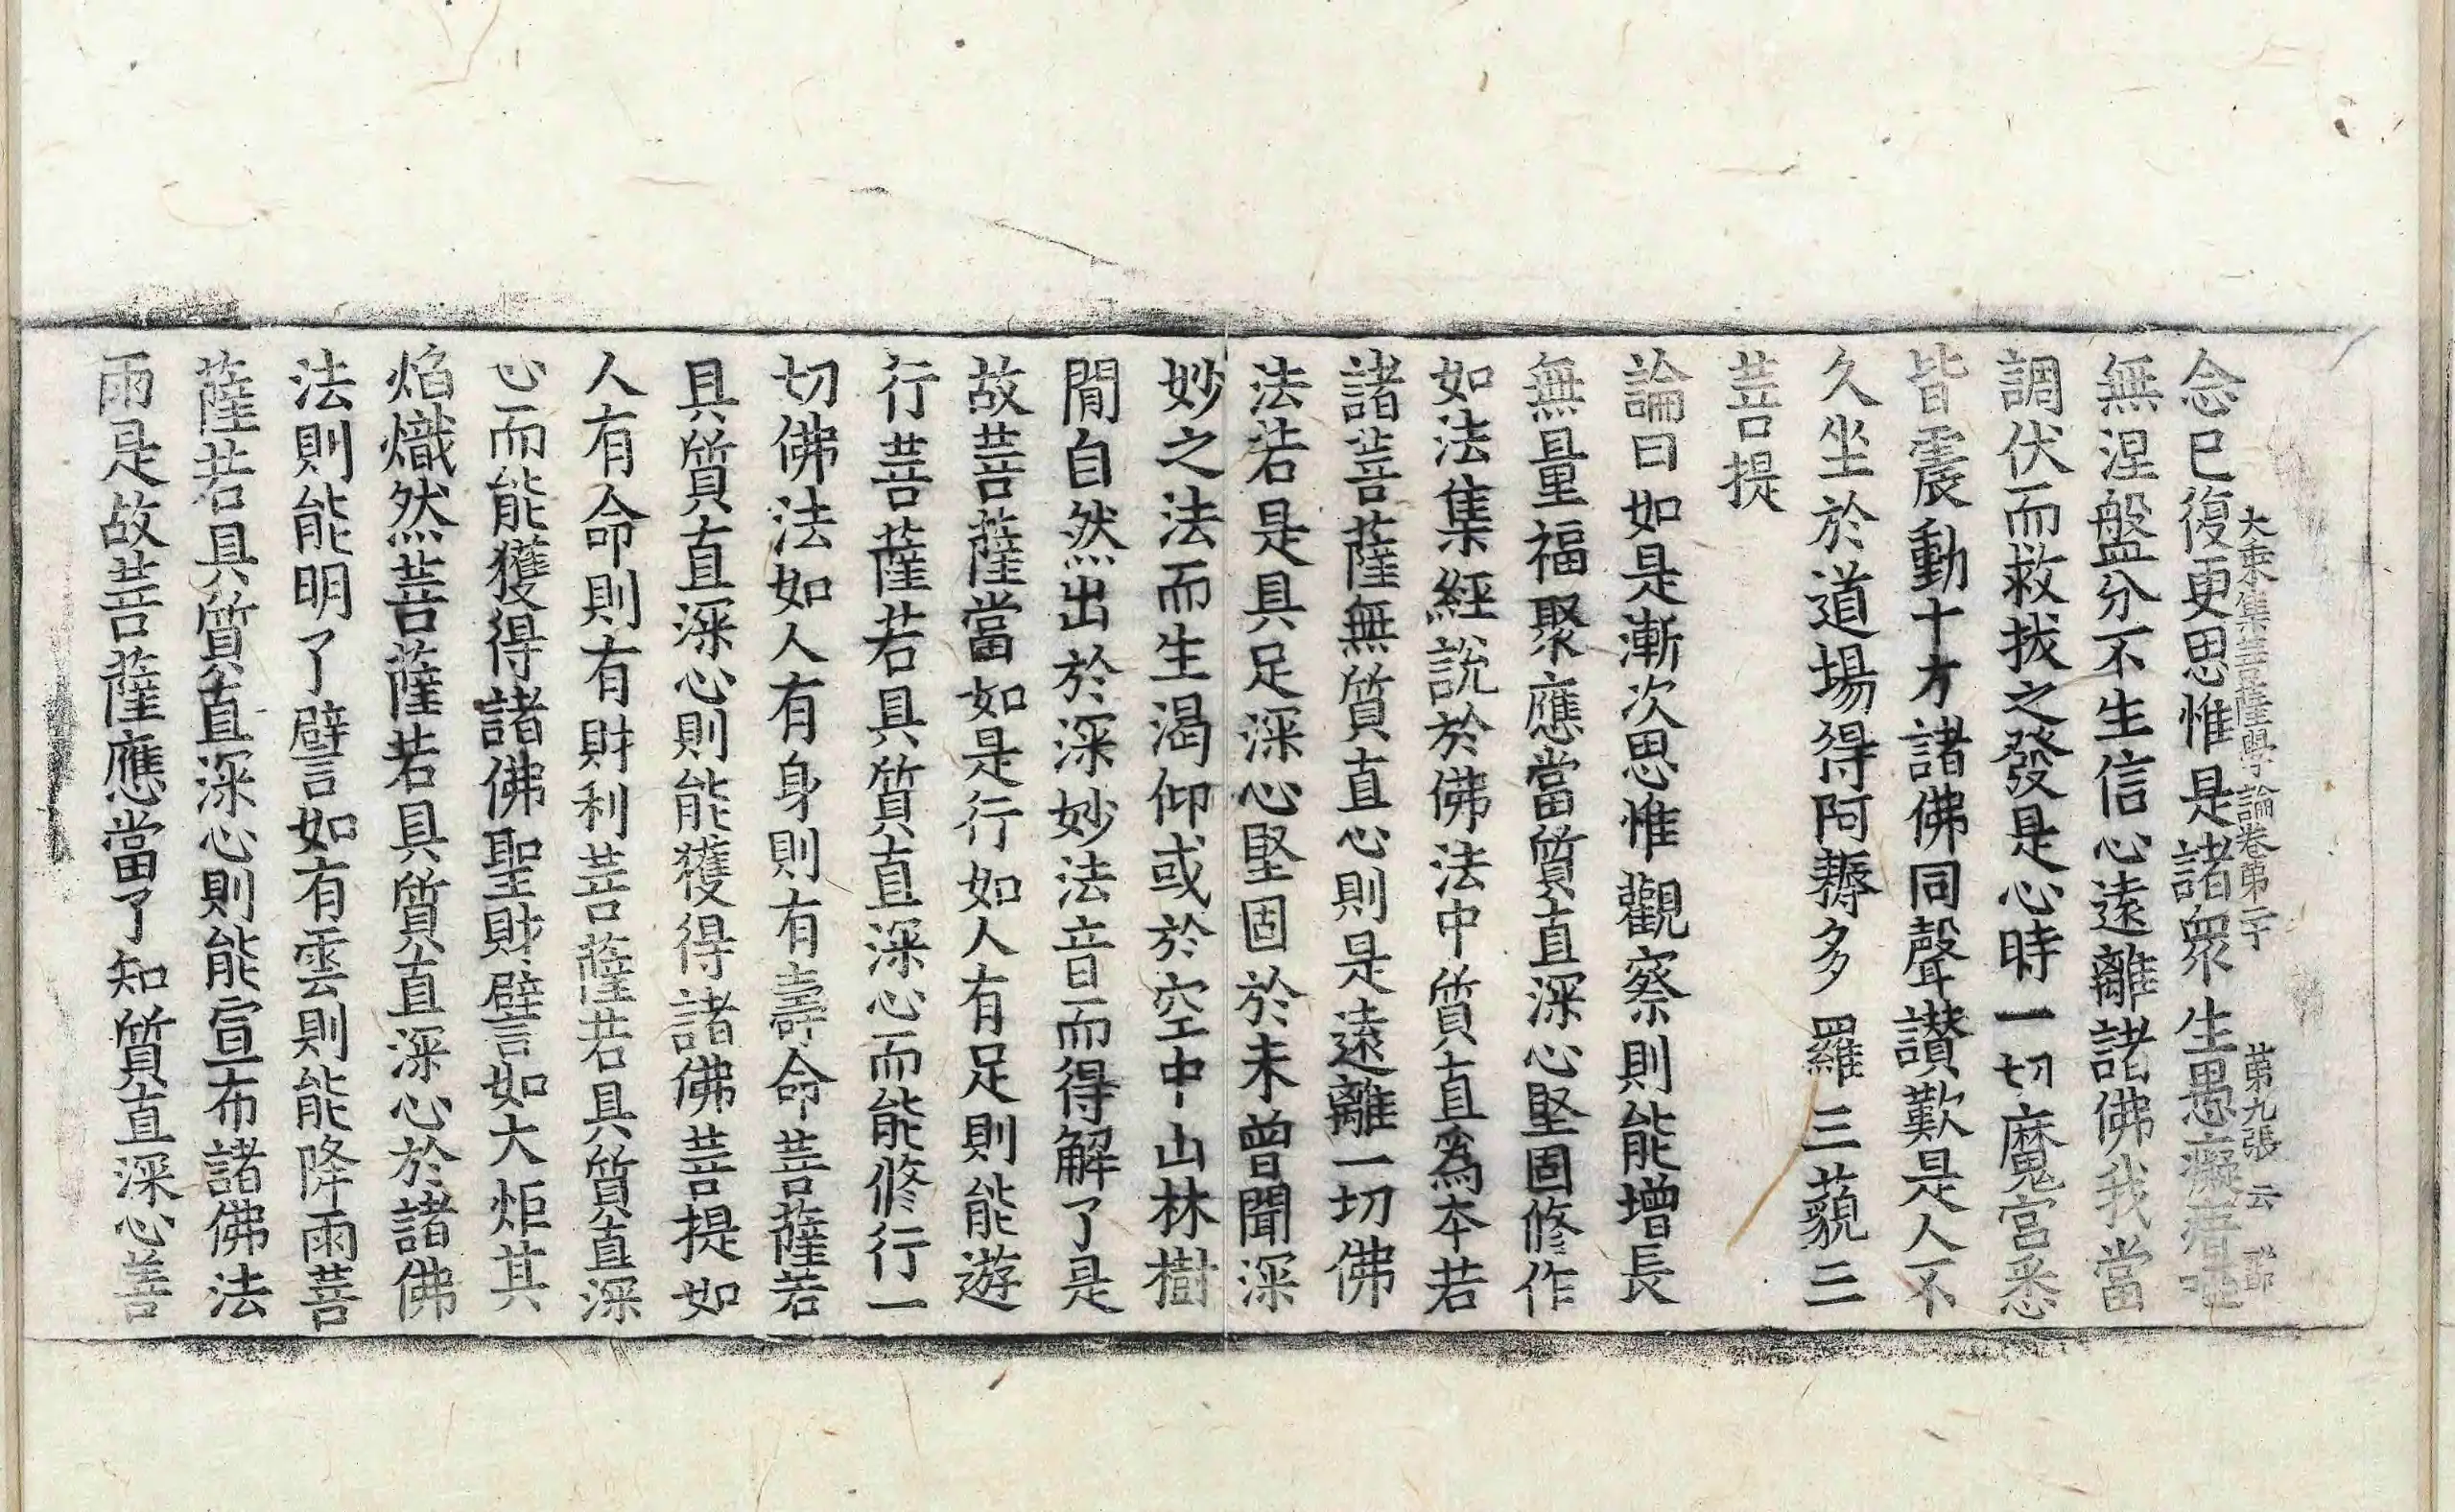 大乗集菩薩學論卷第二十 第九張 云
念已復更思惟是諸衆生愚癡瘖啞
無涅盤分不生信心遠離諸佛我當
調伏而救拔之發是心時一切魔宮悉
皆震動十方諸佛同聲讃歎是人不
久坐於道場得阿耨多羅三藐三
菩提
論曰如是漸次思惟觀察則能增長
無量福聚應當質直深心堅固修作
如法集經說於佛法中質直爲本若
諸菩薩無質直心則是遠離一切佛
法若是具足深心堅固於未曽聞深
妙之法而生渴仰或於空中山林樹
閒自然出於深妙法音而得解了是
故菩薩當如是行如人有足則能遊
行菩薩若具質直深心而能修行一
切佛法如人有身則有壽命菩薩若
具質直深心則能獲得諸佛菩提如
人有命則有財利菩薩若具質直深
心而能獲得諸佛聖財譬如大炬其
焰熾然菩薩若具質直深心於諸佛
法則能明了譬如有雲則能降雨菩
薩若具質直深心則能宣布諸佛法
雨是故菩薩應當了知質直深心善